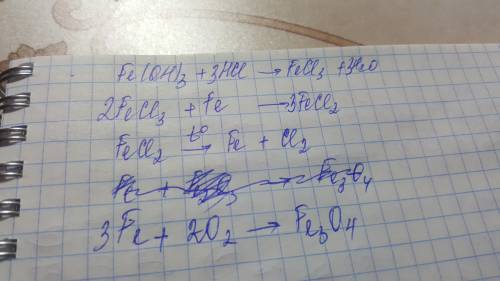 Fe(OH)3 + 3HCl → FeCl3 + 3H2O
2FeCl3 + Fe → 3FeCl2
FeCl2 t° → Fe + Cl2
Fe + → Fe3O4
3Fe + 2O2 → Fe3O4